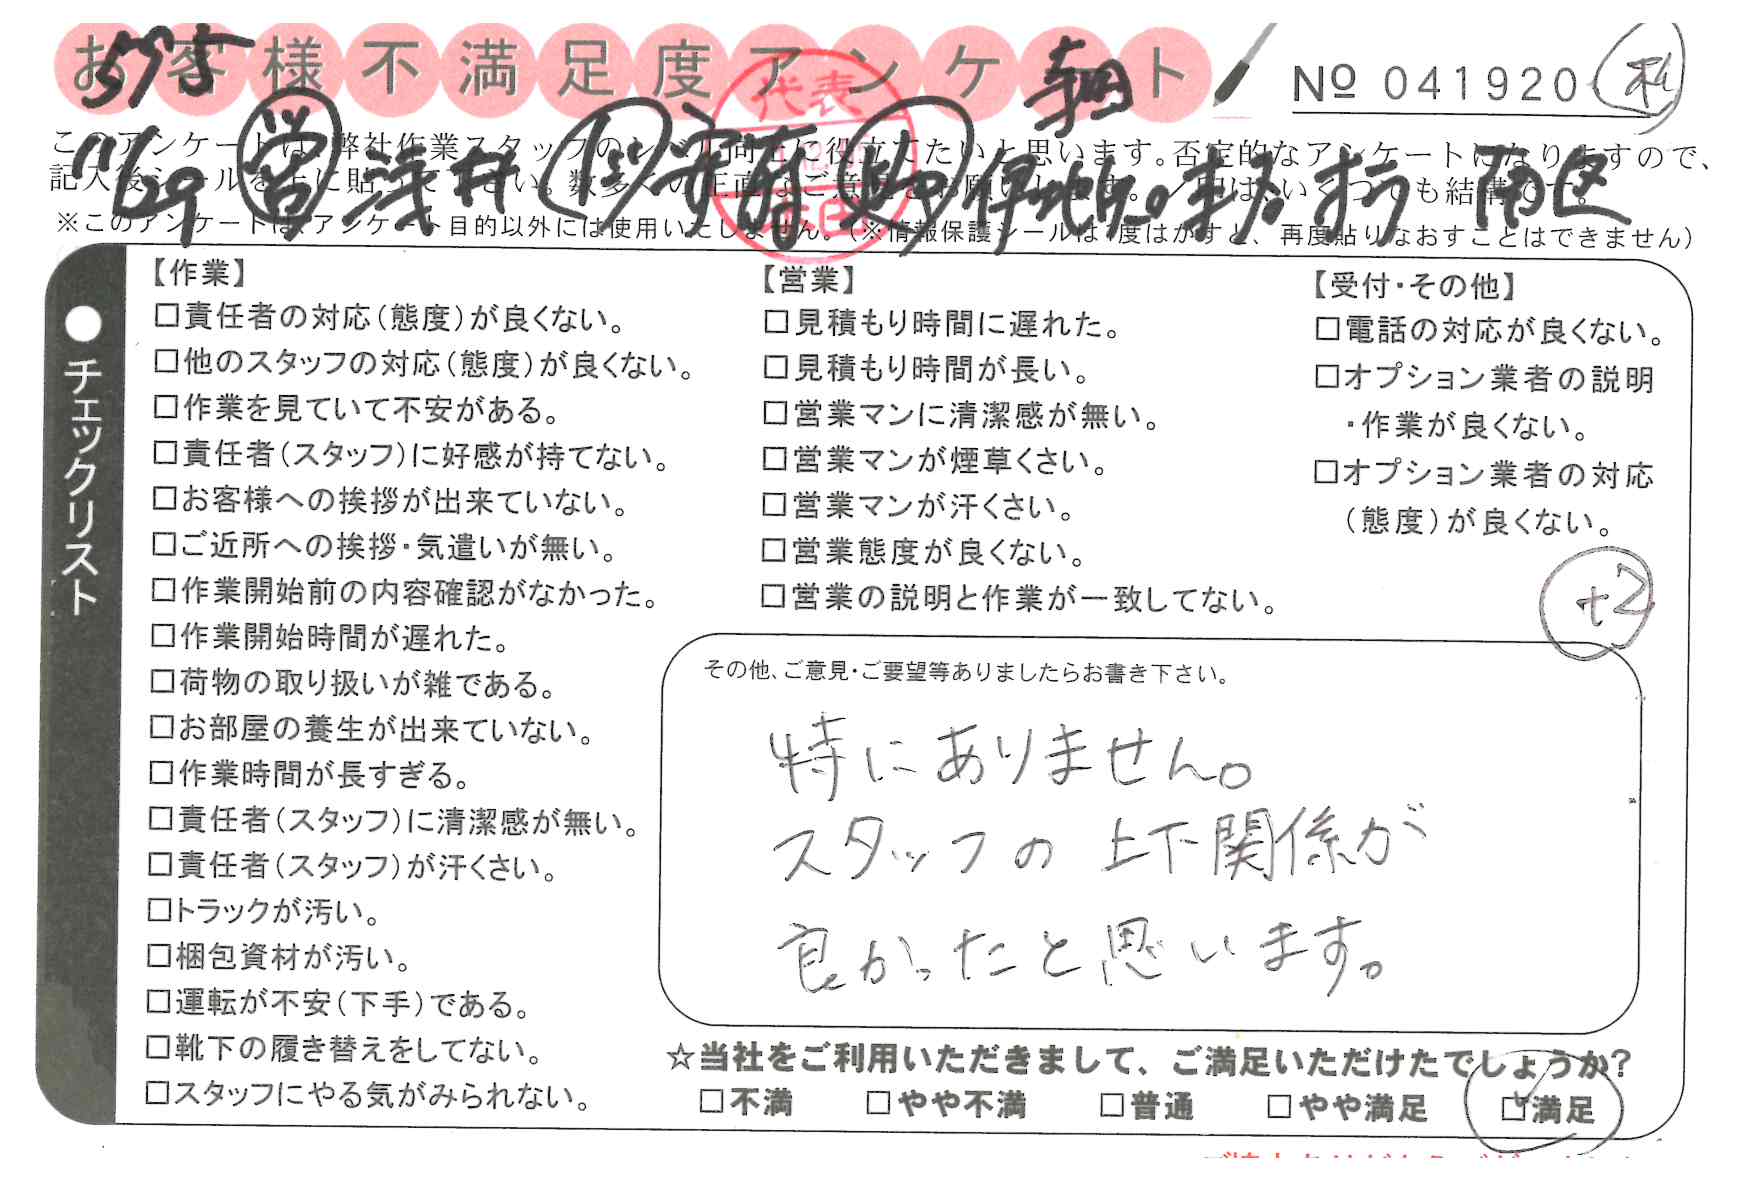 お客様不満足度アンケート
№ 041920 札
このアンケートは、弊社作業スタッフのレベル向上に役立てたいと思います。否定的なアンケートになりますので、
記入後シールを上に貼って下さい。数多くの正直なご意見をお願いします。
※このアンケートは、アンケート目的以外には使用いたしません。(※情報保護シールは1度はがすと、再度貼りなおすことはできません)
代表
11/29 営 浅井 南区
●チェックリスト
【作業】
□責任者の対応(態度)が良くない。
□他のスタッフの対応(態度)が良くない。
□作業を見ていて不安がある。
□責任者(スタッフ)に好感が持てない。
□お客様への挨拶が出来ていない。
□ご近所への挨拶・気遣いが無い。
□作業開始前の内容確認がなかった。
□作業開始時間が遅れた。
□荷物の取り扱いが雑である。
□お部屋の養生が出来ていない。
□作業時間が長すぎる。
□責任者(スタッフ)に清潔感が無い。
□責任者(スタッフ)が汗くさい。
□トラックが汚い。
□梱包資材が汚い。
□運転が不安(下手)である。
□靴下の履き替えをしてない。
□スタッフにやる気がみられない。
【営業】
□見積もり時間に遅れた。
□見積もり時間が長い。
□営業マンに清潔感が無い。
□営業マンが煙草くさい。
□営業マンが汗くさい。
□営業態度が良くない。
□営業の説明と作業が一致してない。
【受付・その他】
□電話の対応が良くない。
□オプション業者の説明
・作業が良くない。
□オプション業者の対応
(態度)が良くない。
+2
その他、ご意見・ご要望等ありましたらお書き下さい。
特にありません。
スタッフの上下関係が
良かったと思います。
☆当社をご利用いただきまして、ご満足いただけたでしょうか?
□不満 □やや不満 □普通 □やや満足 ☑満足